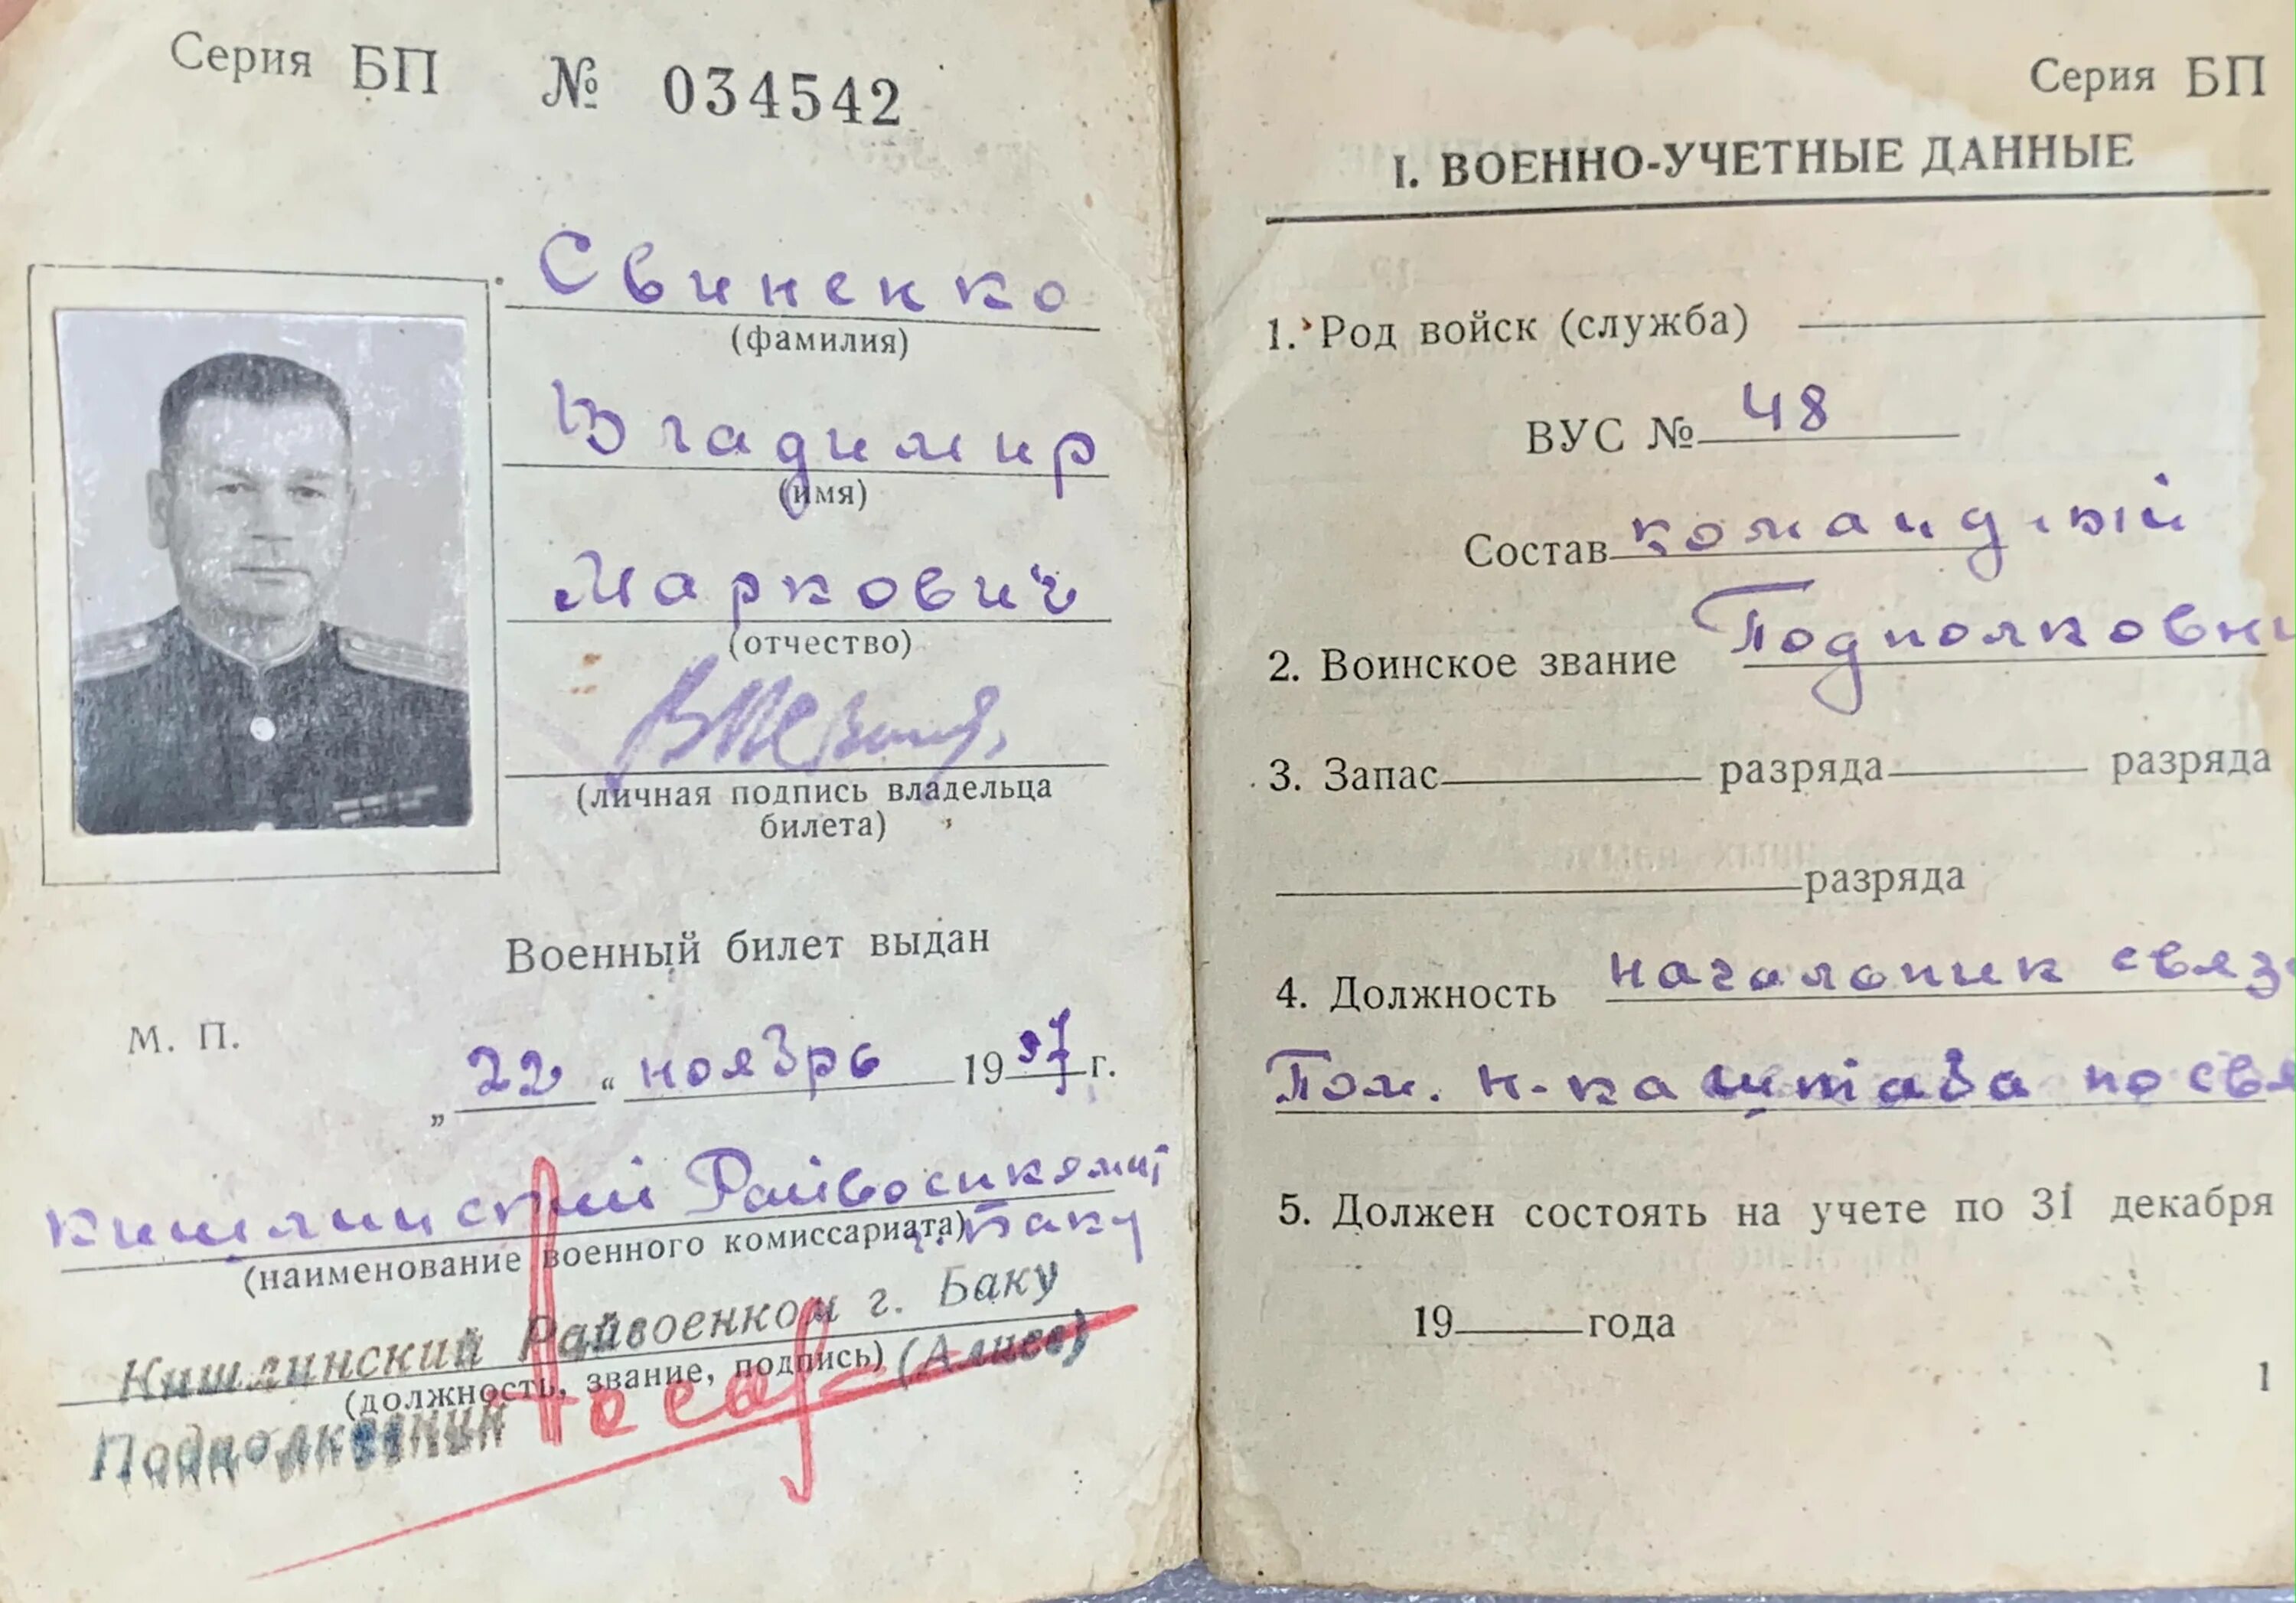 Серия БП № 034542
Свиненко
(фамилия)
Владимир
(имя)
Маркович
(отчество)
(личная подпись владельца
билета)
Военный билет выдан
М. П.
„ 22 “ ноябрь 1957 г.
Кишлинский Райвоенкомат
(наименование военного комиссариата) г. Баку
Кишлинский Райвоенком г. Баку
(должность, звание, подпись) (Алиев)
Подполковник
Серия БП
I. ВОЕННО-УЧЕТНЫЕ ДАННЫЕ
1. Род войск (служба)
ВУС № 48
Состав командный
2. Воинское звание Подполковни
3. Запас разряда разряда
разряда
4. Должность начальник связ
Пом. н-ка штаба по свя
5. Должен состоять на учете по 31 декабря
19 года
1